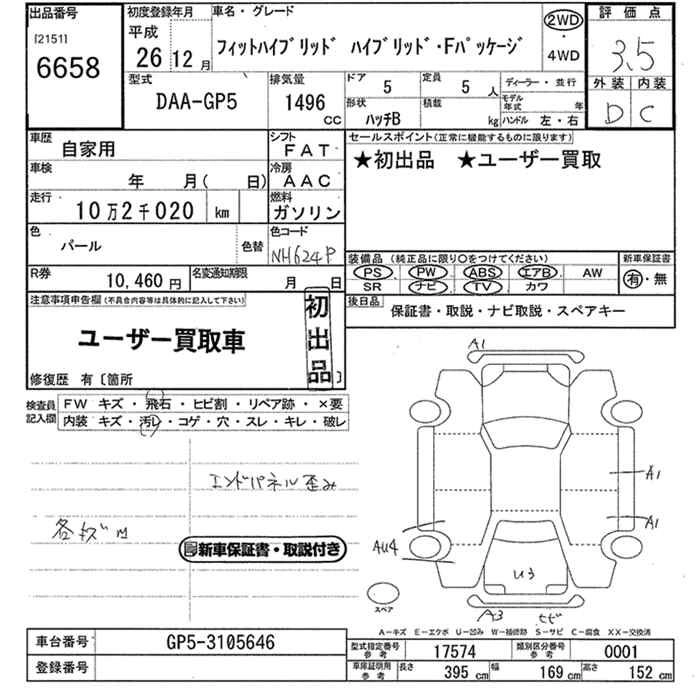 出品番号
[2151]
6658
初度登録年月
平成
26 12 月
車名・グレード
フィットハイブリッド ハイブリッド・Fパッケージ
2WD
・
4WD
評価点
3.5
外装 内装
D C
型式
DAA-GP5
排気量
1496
CC
ドア
5
定員
5 人
ディーラー・並行
形状
ハッチB
積載
kg
モデル年式 年
ハンドル 左・右
車歴
自家用
シフト
FAT
車検
年 月( 日)
冷房
AAC
走行
10万2千020 km
燃料
ガソリン
色
パール
色替
色コード
NH624P
R券
10,460 円
名変通知期限
月 日
セールスポイント(正常に機能するものに限ります)
★初出品 ★ユーザー買取
装備品(純正品に限り○をつけてください)
PS PW ABS エアB AW
SR ナビ TV カワ
新車保証書
有・無
後日品
保証書・取説・ナビ取説・スペアキー
注意事項申告欄(不具合内容等は具体的に記入して下さい)
ユーザー買取車
初出品
修復歴 有〔箇所 〕
検査員記入欄
FW キズ・飛石・ヒビ割・リペア跡・×要
内装 キズ・汚レ・コゲ・穴・スレ・キレ・破レ
エンドパネル歪み
各キズ凹
新車保証書・取説付き
A1
A1
A1
AU4
U3
A3 ヒビ
スペア
A－キズ E－エクボ U－凹み W－補修跡 S－サビ C－腐食 XX－交換済
車台番号
GP5-3105646
登録番号
型式指定番号参考
17574
類別区分番号参考
0001
車庫証明用参考
長さ 395 cm
幅 169 cm
高さ 152 cm